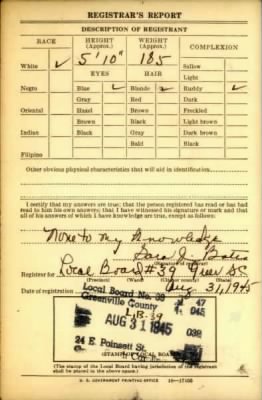 REGISTRAR'S REPORT
DESCRIPTION OF REGISTRANT
RACE HEIGHT (Approx.) WEIGHT (Approx.) COMPLEXION
White ✓ 5' 10" 185 Sallow
EYES HAIR Light
Negro Blue ✓ Blonde ✓ Ruddy ✓
Gray Red Dark
Oriental Hazel Brown Freckled
Brown Black Light brown
Indian Black Gray Dark brown
Bald Black
Filipino
Other obvious physical characteristics that will aid in identification
I certify that my answers are true; that the person registered has read or has had
read to him his own answers; that I have witnessed his signature or mark and that
all of his answers of which I have knowledge are true, except as follows:
None to my knowledge
Sara J.
(Signature of registrar)
Registrar for Local Board #39 Greer SC
(Precinct) (Ward) (City or county) (State)
Date of registration Aug 31, 1945
Local Board No. 39 47
Greenville County 045
L.B.-39
AUG 31 1945 039
24 E. Poinsett St.
(STAMP OF LOCAL BOARD)
(The stamp of the Local Board having jurisdiction of the registrant
shall be placed in the above space.)
U. S. GOVERNMENT PRINTING OFFICE 16—17105